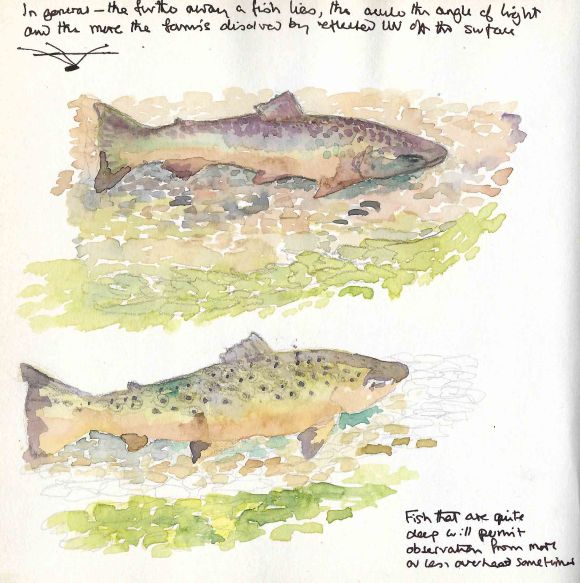 In general – the further away a fish lies, the acuter the angle of light
and the more the form is disolved by reflected UV off the surface
Fish that are quite
deep will permit
observation from more
or less overhead sometimes